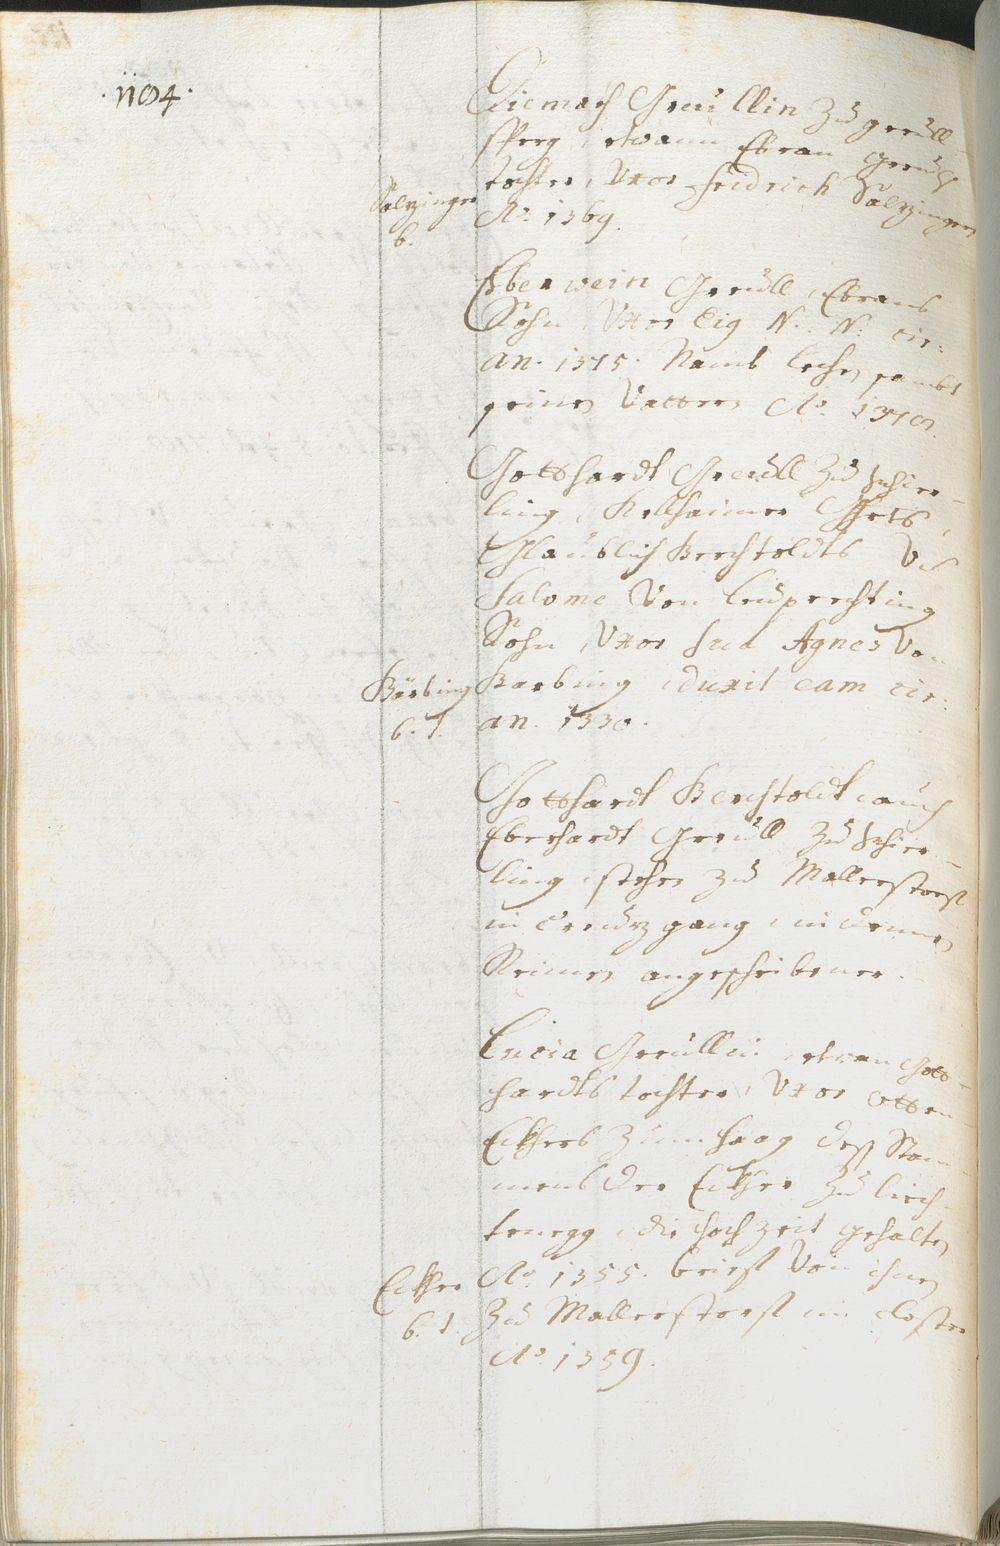 ·1104·
Diemath Greüllin Zu greüll-
sperg, etwann Ebran Greüls
tochter, Vxor Fridrich Salzingers
Aº. 1369.
Salzinger
6.
Eberwein Greüll, Ebrans
Sohn, Vxor Eig N: N: cir:
an. 1375. Namb lechen sambt
seinen Vattern Aº. 1370.
Gotthardt Greüll Zu schier-
ling, Kelhaimer Gfhts,
Glaublich Berchtoldts Vnd
Salome Von leüprechting
Sohn, Vxor sua Agnes Von
Barbing, duxit eam cir:
an. 1330.
Bärbing
6. 1.
Gotthardt Berchtoldt, auch
Eberhardt Greüll Zu schier-
ling, stehen Zu Mallerstorff
in Creüzgang, in denen
Reimen angeschribener.
Lucia Greüllin, etwan Gott-
hardts tochter, Vxor Otten
Eckhers Zum haag deß Stam-
mens der Eckher Zu liech-
tenegg, die hochzeit gehalten
Aº. 1355. brieff Von ihnen
Zu Mallerstorff im Closter
Aº. 1359.
Eckher
6. 1.